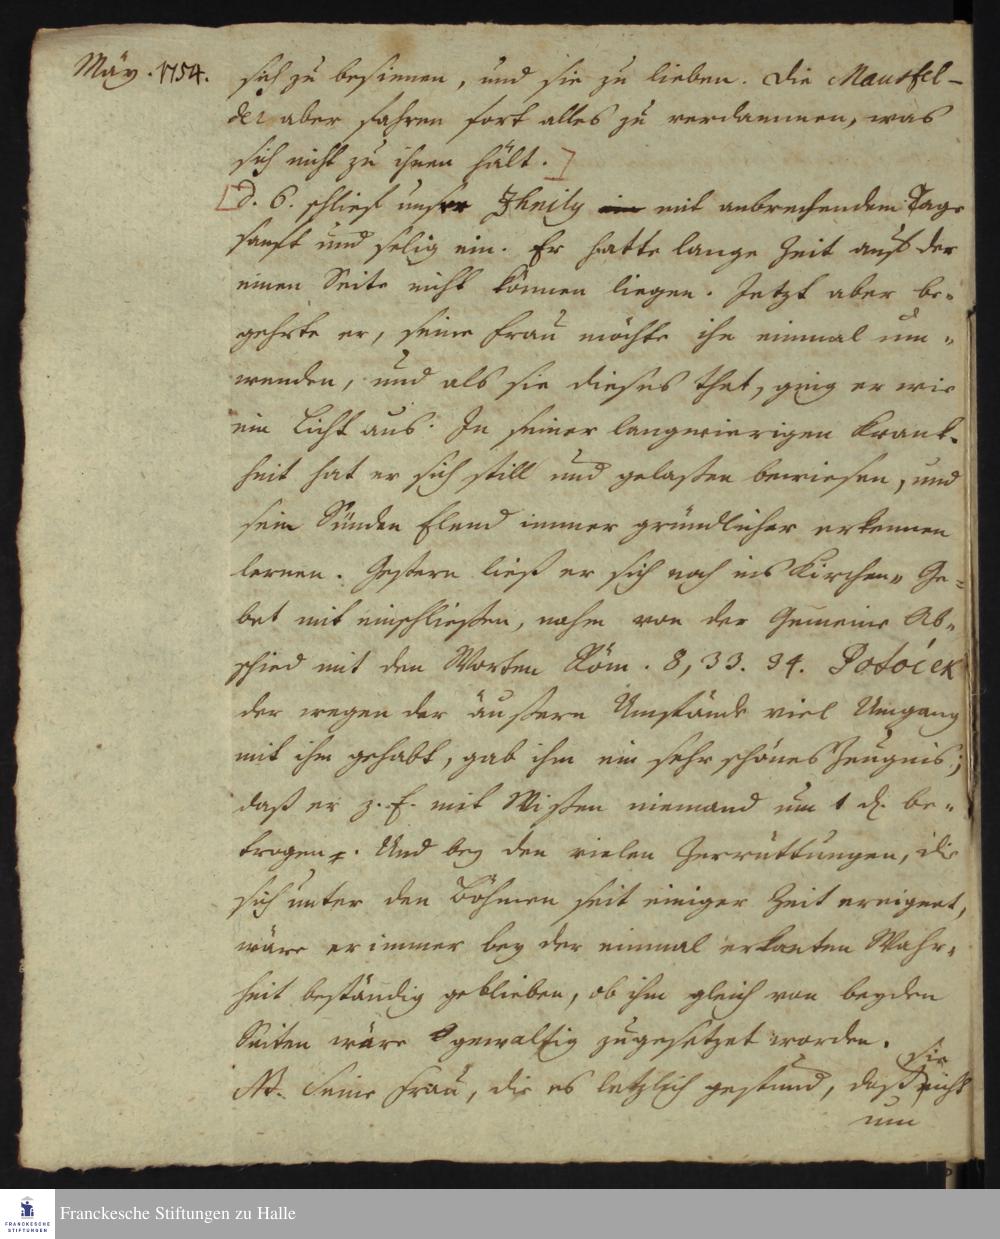 Mäy. 1754.
sich zu besinnen, und sie zu lieben. Die Mausfel-
der aber fahren fort alles zu verdammen, was
sich nicht zu ihnen hält.]
[d. 6. schlief unser mit anbrechendem Tage
sanft und selig ein. Er hatte lange Zeit auf der
einen Seite nicht können liegen. Jetzt aber be-
gehrte er, seine Frau möchte ihn einmal um-
wenden, und als sie dieses that, ging er wie
ein Licht aus. In seiner langwierigen Krank-
heit hat er sich still und gelaßen bewiesen, und
sein Sünden Elend immer gründlicher erkennen
lernen. Gestern ließ er sich noch ins Kirchen-Ge-
bet mit einschließen, nahm von der Gemeine Ab-
schied mit den Worten Röm. 8, 33. 34. Potocek
der wegen der äußern Umstände viel Umgang
mit ihm gehabt, gab ihm ein sehr schönes Zeugnis;
daß er z. E. mit Wißen niemand um 1 d. be-
trogen. Und bey den vielen Zerrüttungen, die
sich unter den Böhmen seit einiger Zeit ereignet,
wäre er immer bey der einmal erkanten Wahr-
heit beständig geblieben, ob ihm gleich von beyden
Seiten wäre gewaltig zugesetzet worden.
NB. Seine Frau, die es letzlich gestund, daß sie nicht
um
Franckesche Stiftungen zu Halle
FRANCKESCHE
STIFTUNGEN